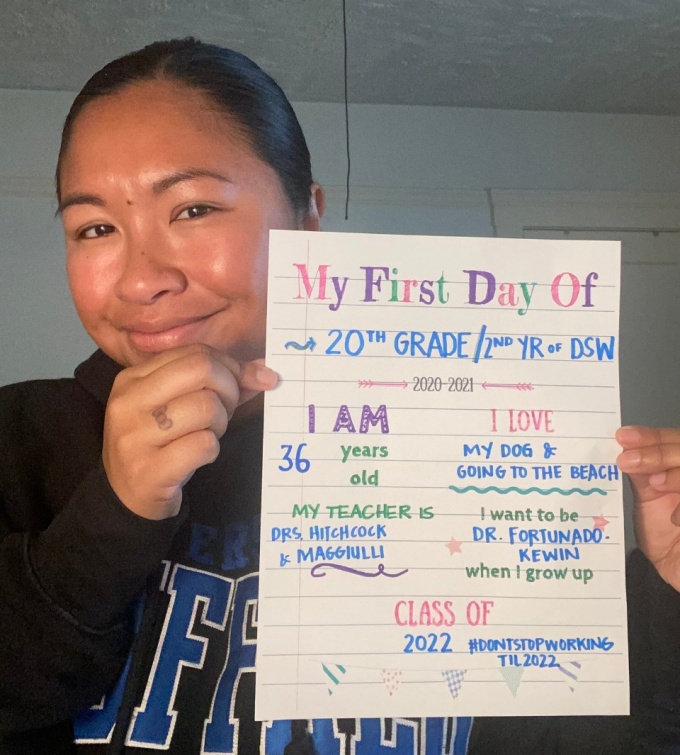 My First Day Of
20TH GRADE/2ND YR OF DSW
2020-2021
I AM
36 years
old
I LOVE
MY DOG &
GOING TO THE BEACH
MY TEACHER IS
DRS. HITCHCOCK
& MAGGIULLI
I want to be
DR. FORTUNADO-
KEWIN
when I grow up
CLASS OF
2022 #DONTSTOPWORKING
TIL2022